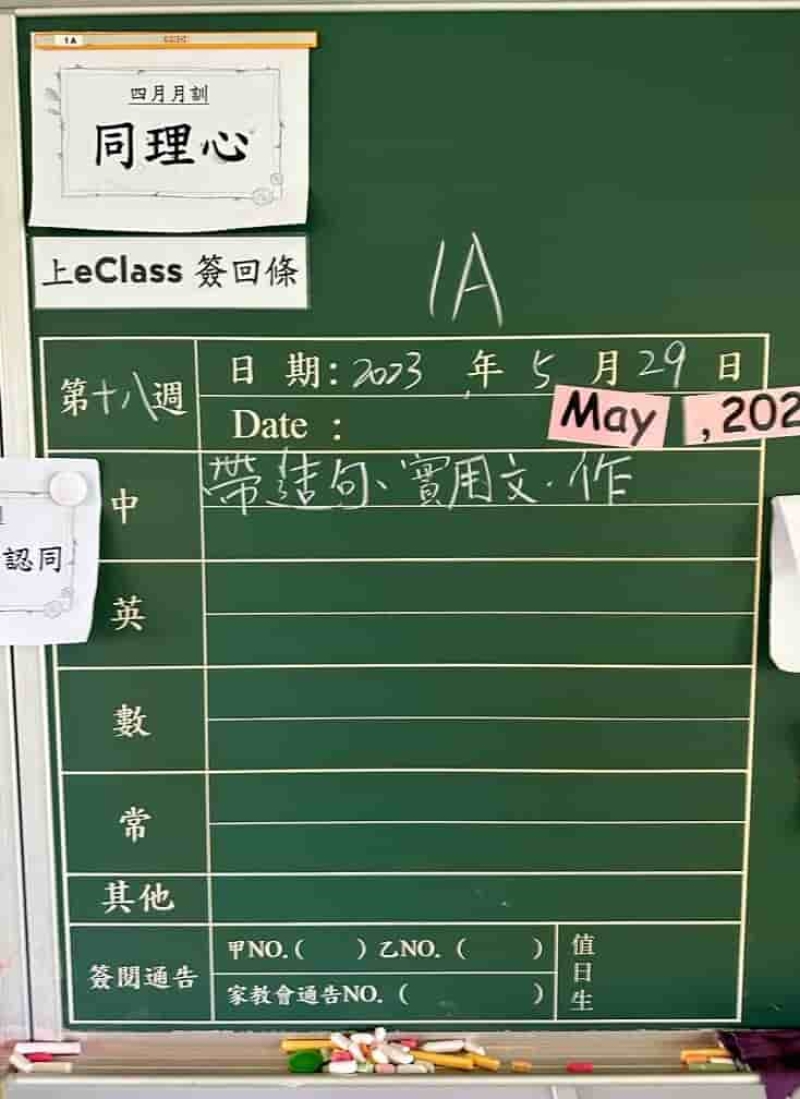 1A
四月月訓
同理心
上eClass 簽回條
1A
第十八週
日 期: 2023 年 5 月 29 日
Date :
May , 202
中
帶 结句、實用文.作
認同
英
數
常
其他
簽閱通告
甲NO.( ) 乙NO. ( )
家教會通告NO. ( )
值日生